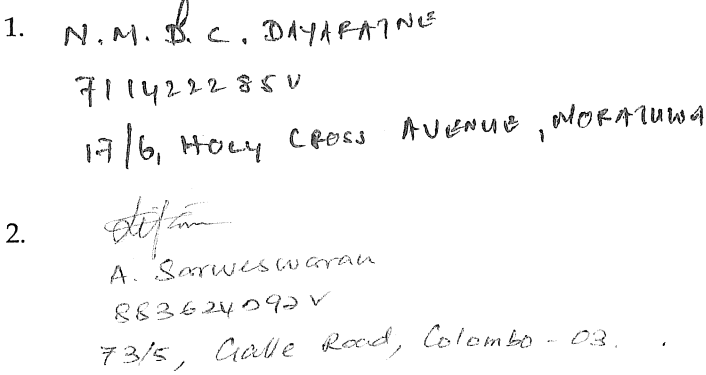 1. N.M.B.C. DAYARATNE
711422285V
17/6, HOLY CROSS AVENUE, MORATUWA
2.
A. Sarweswaran
883624092V
73/5, Galle Road, Colombo - 03.